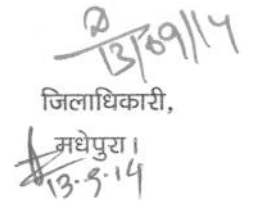 13/09/14
जिलाधिकारी,
मधेपुरा।
13.9.14